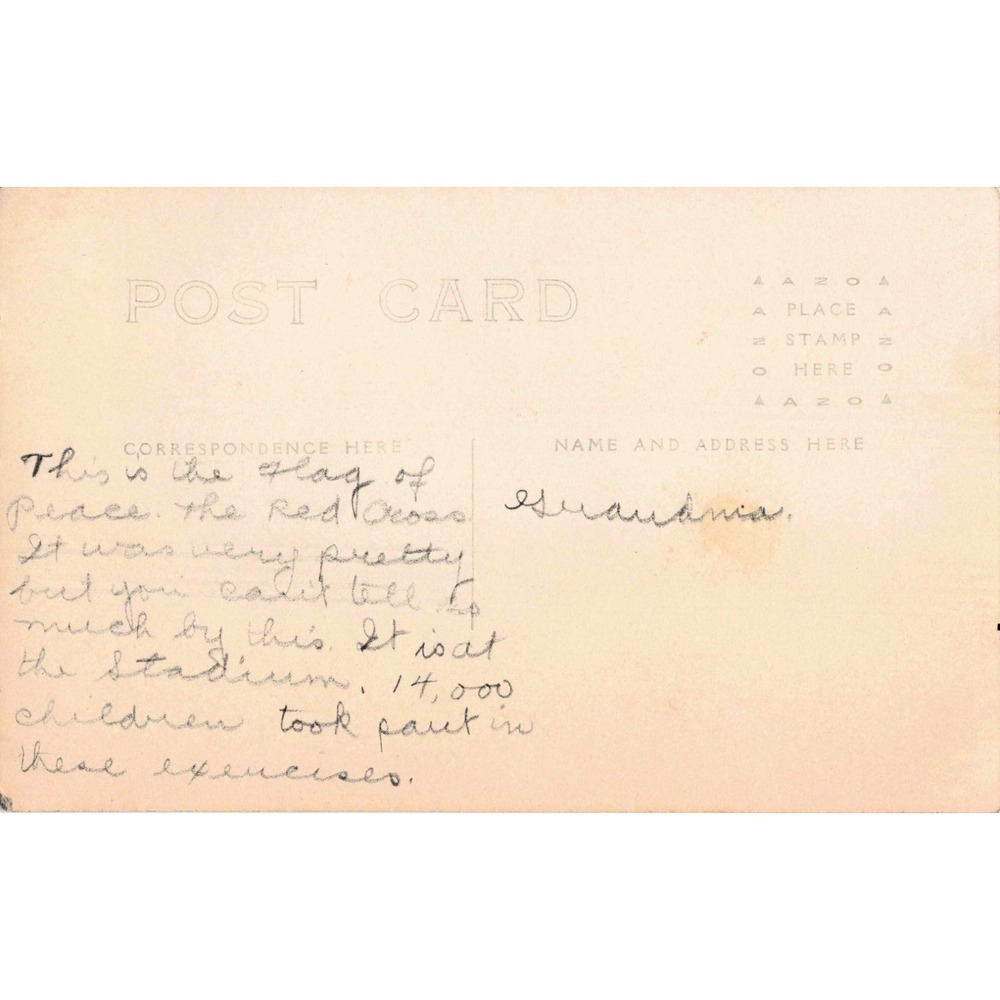 POST CARD
AZO
A PLACE A
Z STAMP Z
O HERE O
AZO
CORRESPONDENCE HERE
NAME AND ADDRESS HERE
This is the Flag of
Peace. The Red Cross
It was very pretty
but you can't tell so
much by this. It is at
the Stadium. 14,000
children took part in
these exercises.
Grandma.